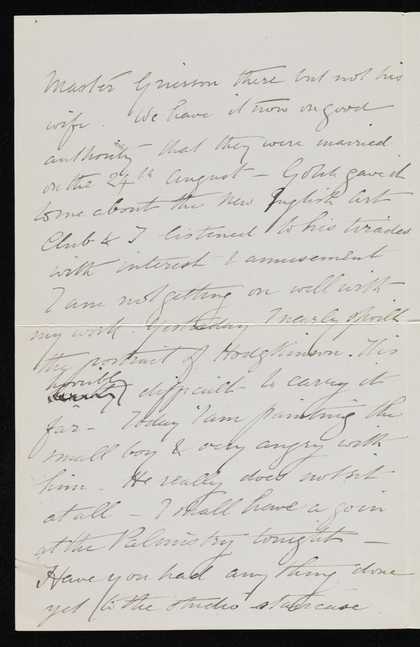 Master Grierson there but not his
wife. We have it now on good
authority that they were married
on the 24th August – Gotch gave it
to me about the New English Art
Club & I listened to his tirades
with interest & amusement
I am not getting on well with
my work. Yesterday I nearly spoilt
the portrait of Hodgkinson. It is
horribly difficult to carry it
far – Today I am painting the
small boy & very angry with
him. He really does not sit
at all – I shall have a go in
at the Palmistry tonight –
Have you had anything done
yet to the studio staircase